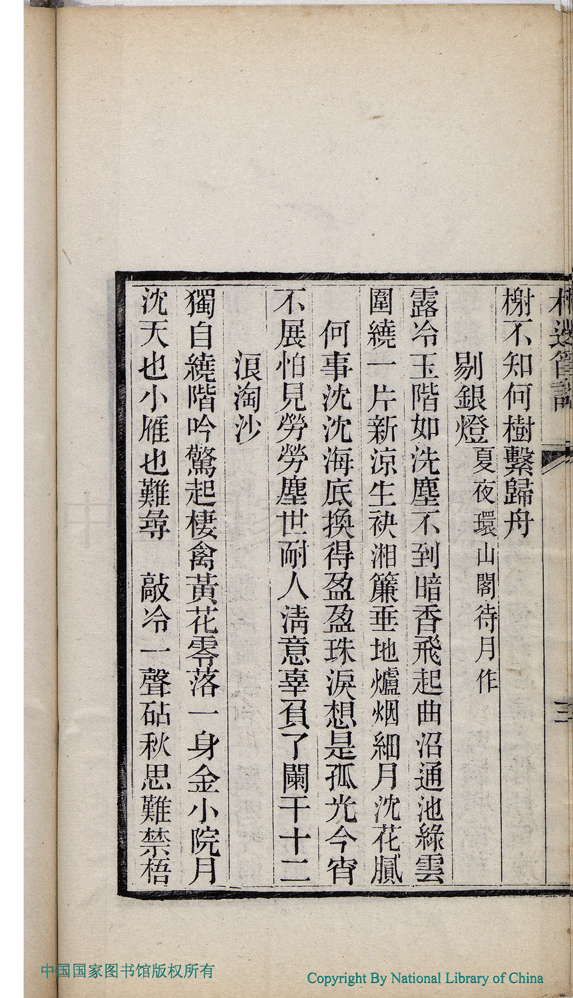 榭不知何樹繫歸舟
剔銀燈夏夜環山閣待月作
露冷玉階如洗塵不到暗香飛起曲沼通池綠雲
圍繞一片新涼生袂湘簾垂地爐烟細月沈花膩
何事沈沈海底換得盈盈珠淚想是孤光今宵
不展怕見勞勞塵世耐人淸意辜負了闌干十二
浪淘沙
獨自繞階吟驚起棲禽黃花零落一身金小院月
沈天也小雁也難尋　敲冷一聲砧秋思難禁梧
三
中国国家图书馆版权所有
Copyright By National Library of China